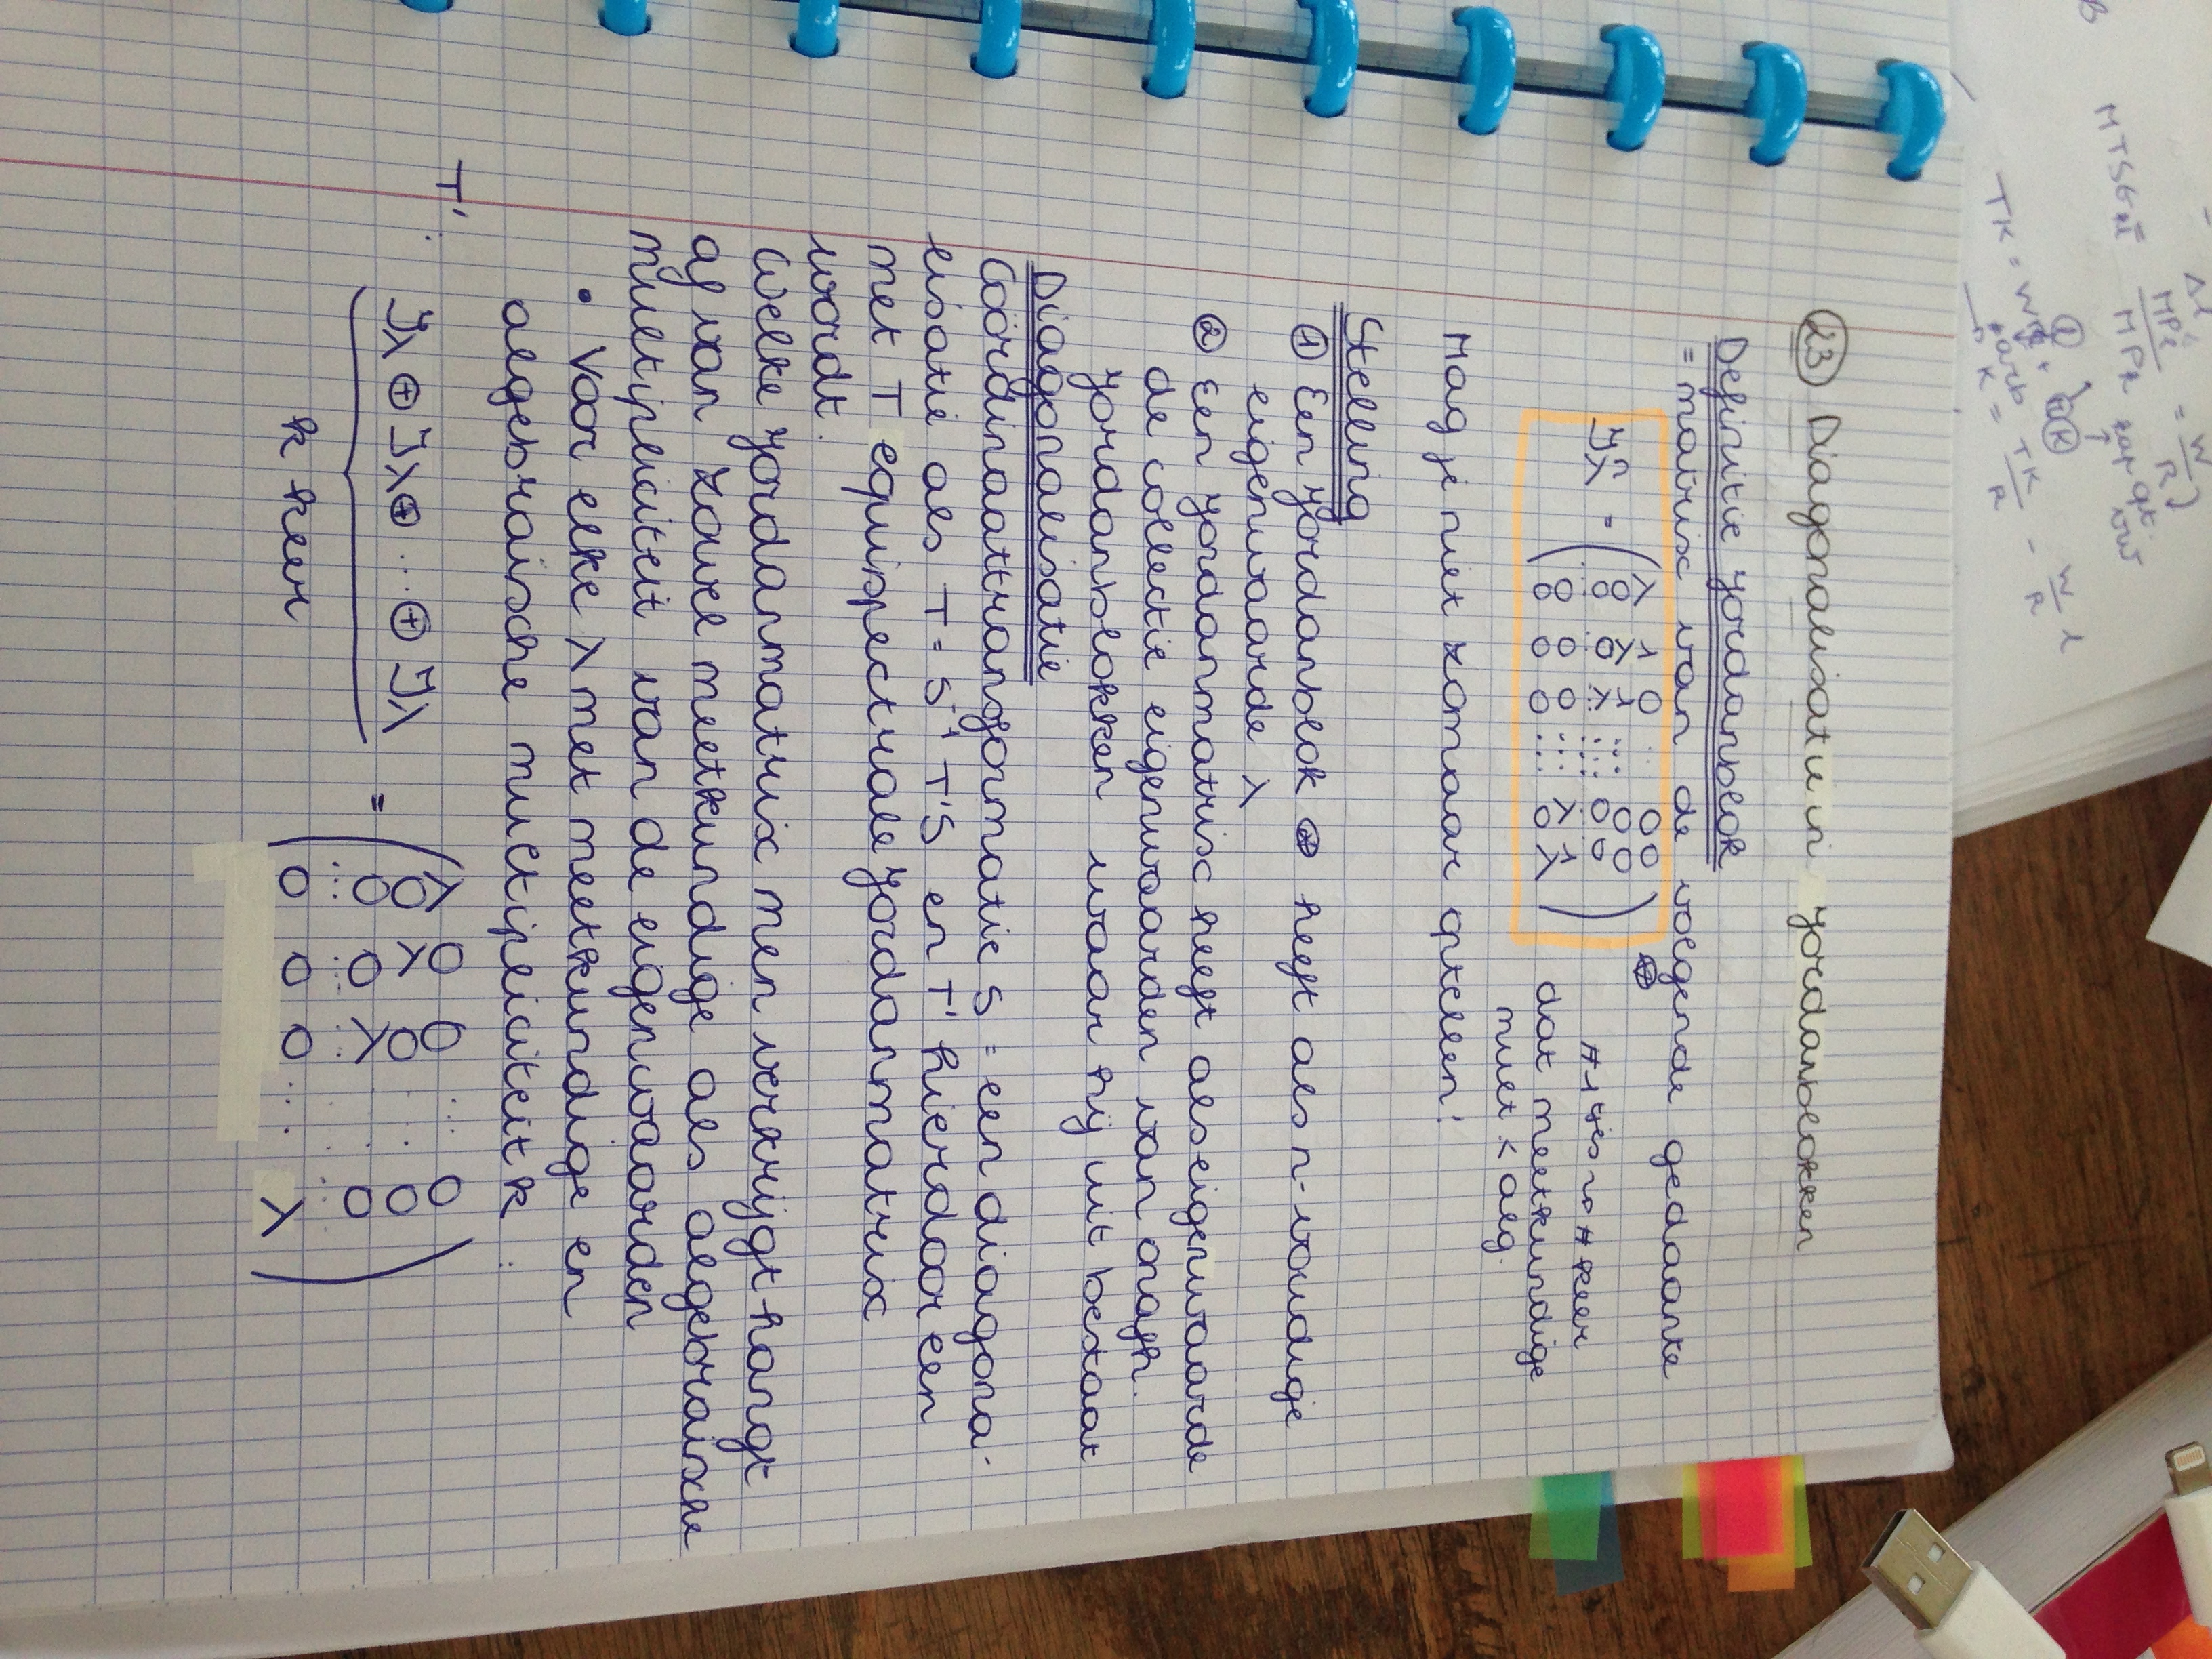 23 Diagonalisatie in yordanblokken
Definitie yordanblok
= matrix van de volgende gedaante
Jⁿλ = ( λ 1 0 0 0
0 λ 1 ... 0 0
0 0 λ ... 0 0
0 0 0 ... λ 1
0 0 0 ... 0 λ )
dat meetkundige
mult < alg.
Mag je niet zomaar optellen!
Stelling
① Een yordanblok heeft als n-voudige
eigenwaarde λ
② Een yordanmatrix heeft als eigenwaarde
de collectie eigenwaarden van onafh.
yordanblokken waar hij uit bestaat
Diagonalisatie
Coördinaattransformatie S = een diagona-
lisatie als T = S⁻¹ T'S en T' hierdoor een
met T equispectrale yordanmatrix
wordt.
Welke yordanmatrix men verkrijgt hangt
af van zowel meetkundige als algebraïsche
multipliciteit van de eigenwaarden
• Voor elke λ met meetkundige en
algebraïsche multipliciteit k :
T' : Jλ ⊕ Jλ ⊕ ... ⊕ Jλ = ( λ 0 0 ... 0
0 λ 0 ... 0
0 0 λ ... 0
0 0 0 ... λ )
k keer
MPR
TK
W
R